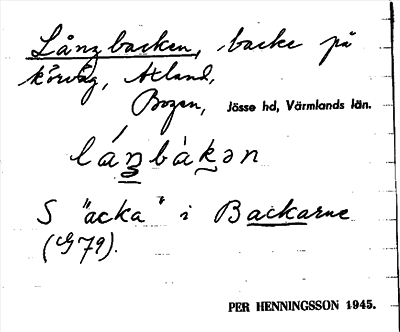 Långbacken, backe på
körväg, Åland,
Bogen, Jösse hd, Värmlands län.
lánbàkən
S "acka" i Backarne
(G79).
PER HENNINGSSON 1945.